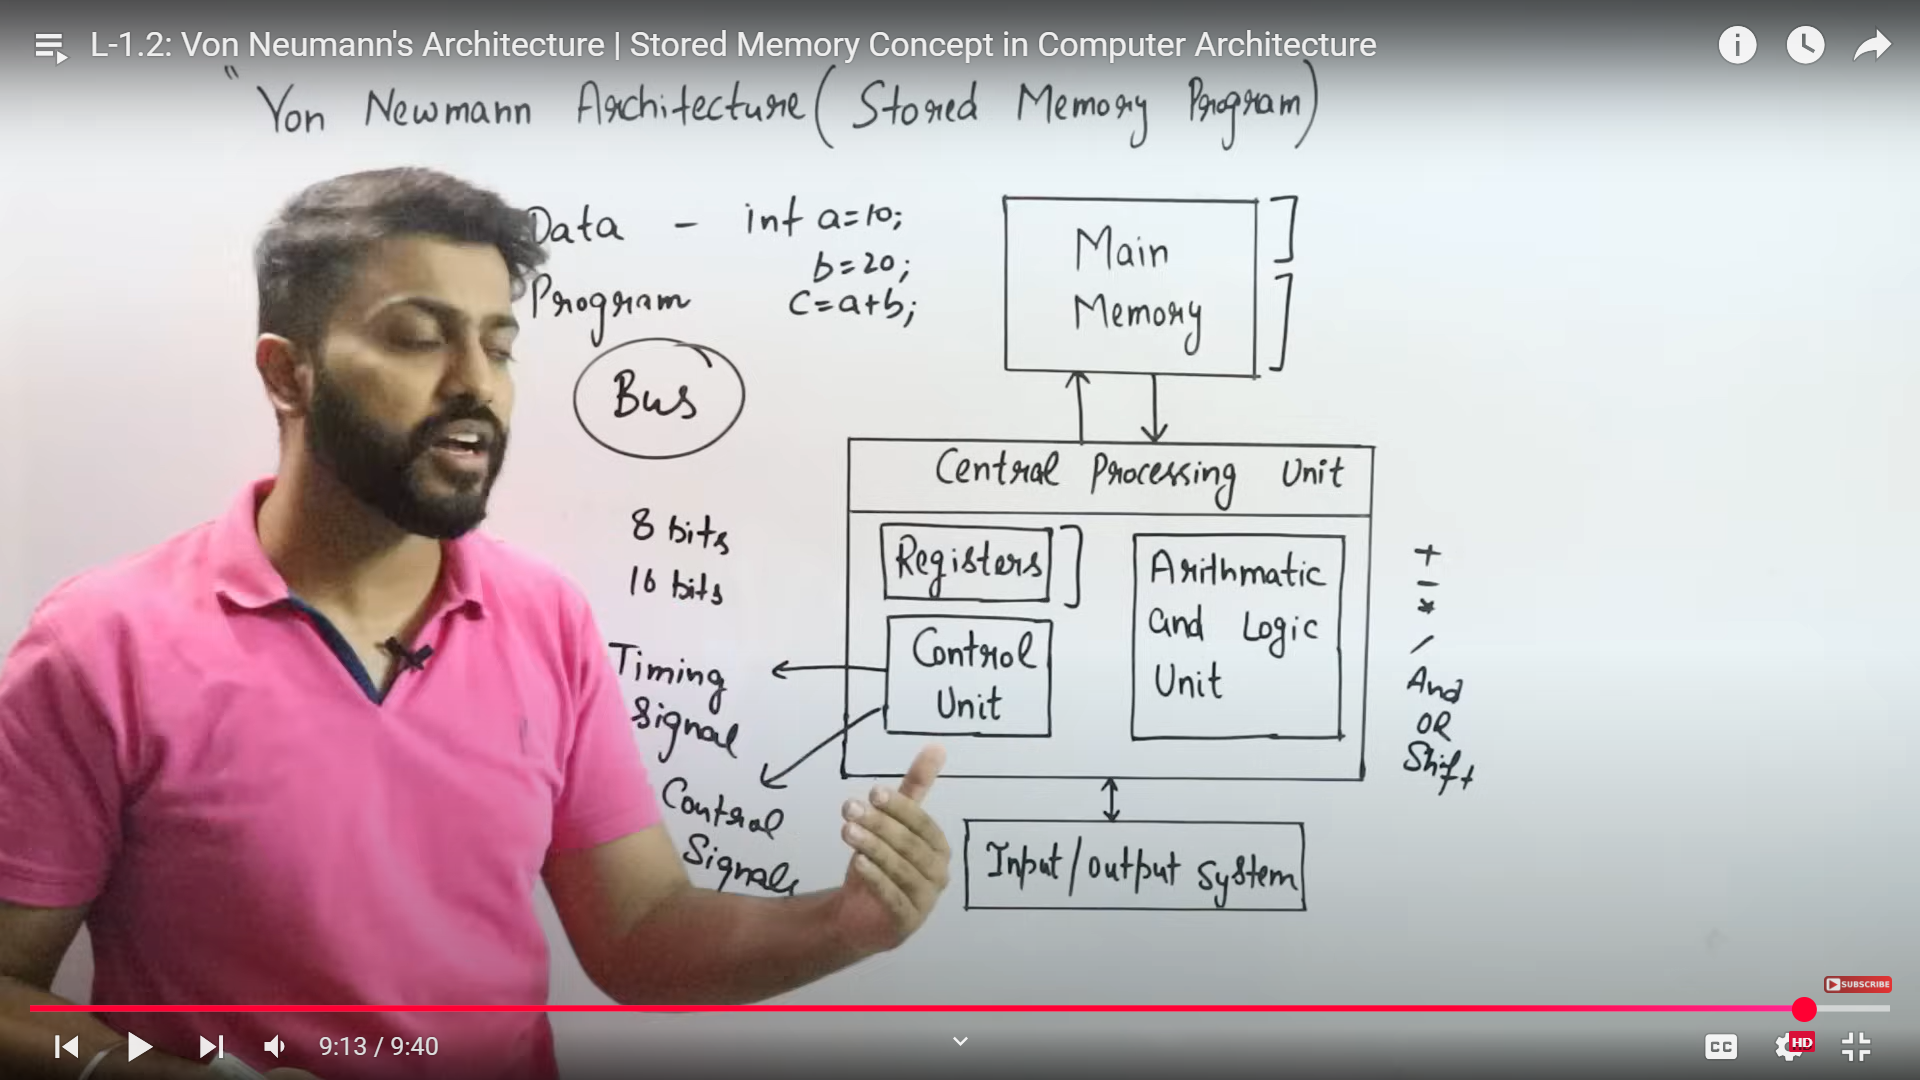 L-1.2: Von Neumann's Architecture | Stored Memory Concept in Computer Architecture
" Von Newmann Architecture ( Stored Memory Program)
Data - int a=10;
b=20;
Program c=a+b;
Bus
8 bits
16 bits
Timing
Signal
Control
Signals
Main
Memory
Central Processing Unit
Registers
Control
Unit
Arithmatic
and Logic
Unit
+
-
*
/
And
OR
Shift
Input/output System
SUBSCRIBE
9:13 / 9:40
CC
HD